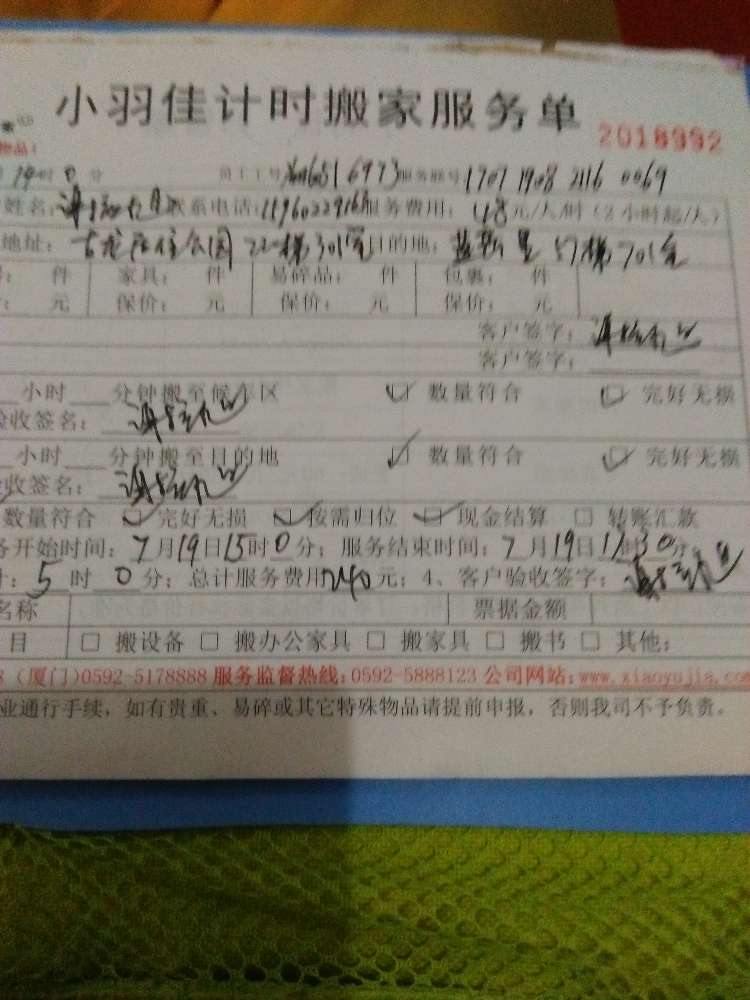 小羽佳计时搬家服务单 2018992
物品:
时0分 员工工号 6516973 服务账号1707 1908 2116 0069
姓名: 联系电话: 服务费用:48元/人/时(2小时起/人)
地址:古龙居住公园 22梯301室 目的地: 57梯701室
: 件 家具: 件 易碎品: 件 包裹: 件
: 元 保价: 元 保价: 元 保价: 元
客户签字:
客户签字:
小时 分钟搬至候车区 ☑ 数量符合 ☑ 完好无损
验收签名:
小时 分钟搬至目的地 ☑ 数量符合 ☑ 完好无损
验收签名:
数量符合 ☑ 完好无损 ☑ 按需归位 ☑ 现金结算 □ 转账汇款
务开始时间:7月19日15时0分;服务结束时间:7月19日 时30分
:5时0分;总计服务费用240元;4、客户验收签字:
名称 票据金额
目 □ 搬设备 □ 搬办公家具 □ 搬家具 □ 搬书 □ 其他:
8(厦门)0592-5178888 服务监督热线:0592-5888123 公司网站:www.xiaoyujia.com
业通行手续,如有贵重、易碎或其它特殊物品请提前申报,否则我司不予负责。